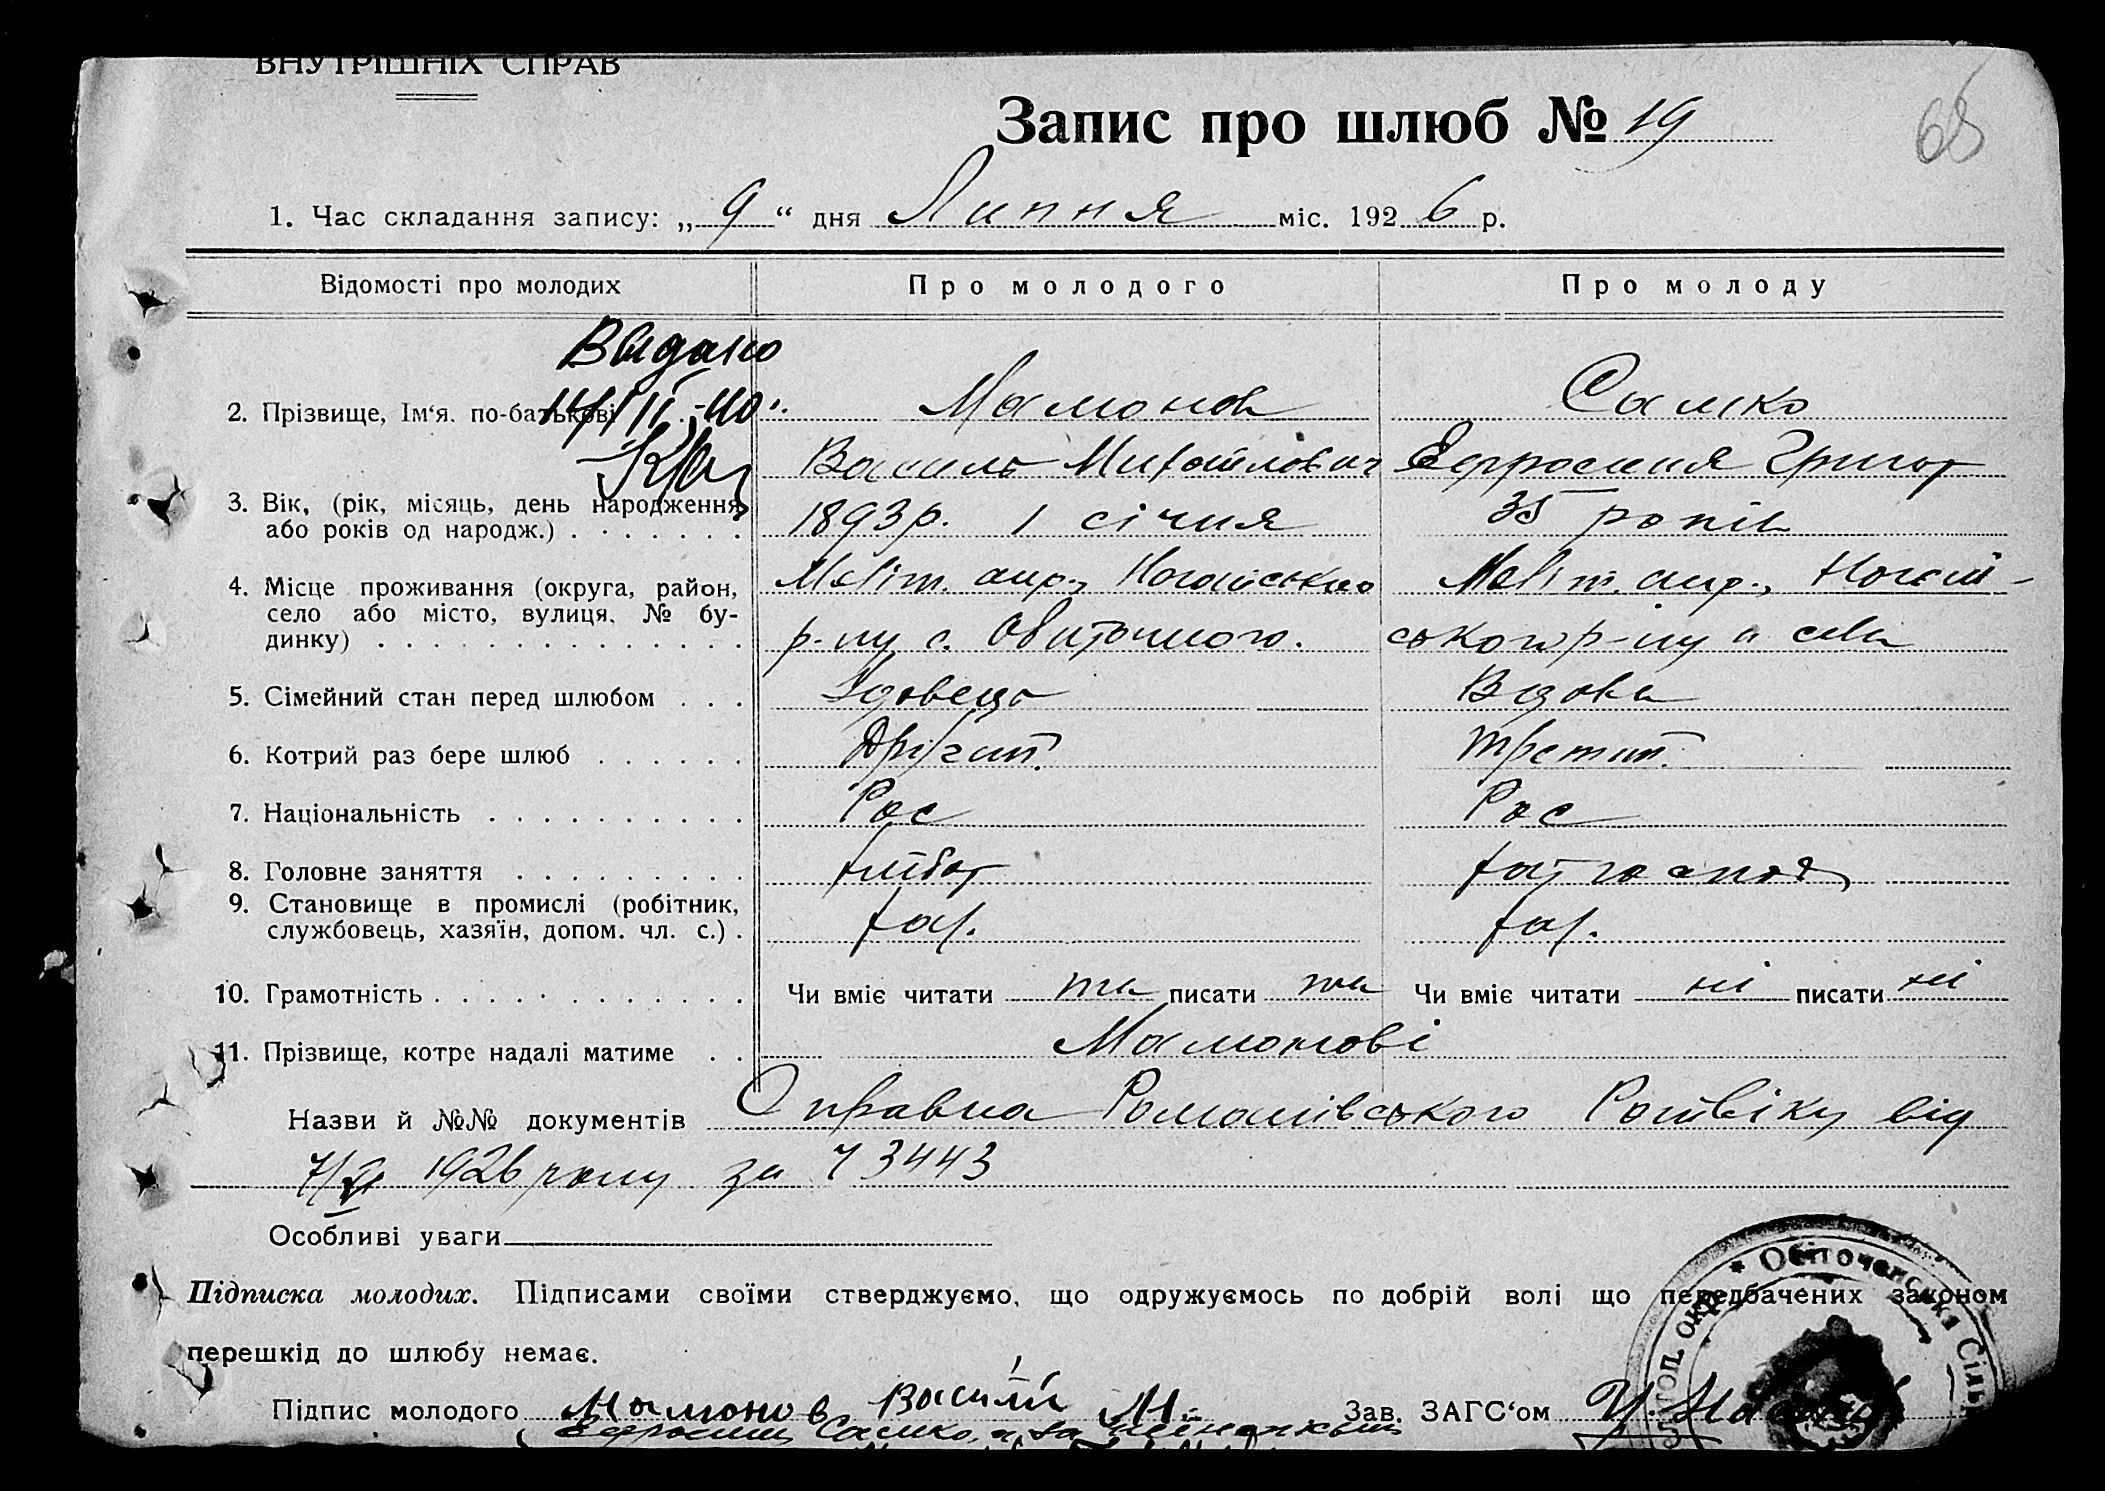 ВНУТРІШНІХ СПРАВ
Запис про шлюб № 19
68
1. Час складання запису: „ 9 “ дня Липня міс. 1926 р.
Відомості про молодих Про молодого Про молоду
Видано
2. Прізвище, Ім‘я. по-батькові Мамонов Самко
Василь Михайлович Ефросинія Григор
3. Вік, (рік, місяць, день народження 1893 р. 1 січня 35 років
або років од народж.)
4. Місце проживання (округа, район, Меліт. окр., Ногайського Меліт. окр., Ногай-
село або місто, вулиця, № бу-
динку) р-ну с. Обиточного. ського р-ну села
5. Сімейний стан перед шлюбом Удовець Вдова
6. Котрий раз бере шлюб Другий. Третий.
7. Національність Рос Рос
8. Головне заняття хлібор хатгоспод
9. Становище в промислі (робітник,
службовець, хазяїн, допом. чл. с.) хаз. хаз.
10. Грамотність Чи вміє читати та писати та Чи вміє читати ні писати ні
11. Прізвище, котре надалі матиме Мамонові
Назви й №№ документів Справка Романівського Райвіку від
1926 року за ч 3443
Особливі уваги
Підписка молодих. Підписами своїми стверджуємо, що одружуємось по добрій волі що передбачених законом
перешкід до шлюбу немає.
Підпис молодого Мамонов Василй М. Зав. ЗАГС‘ом
Самко, а за
Обіточенська Сіль